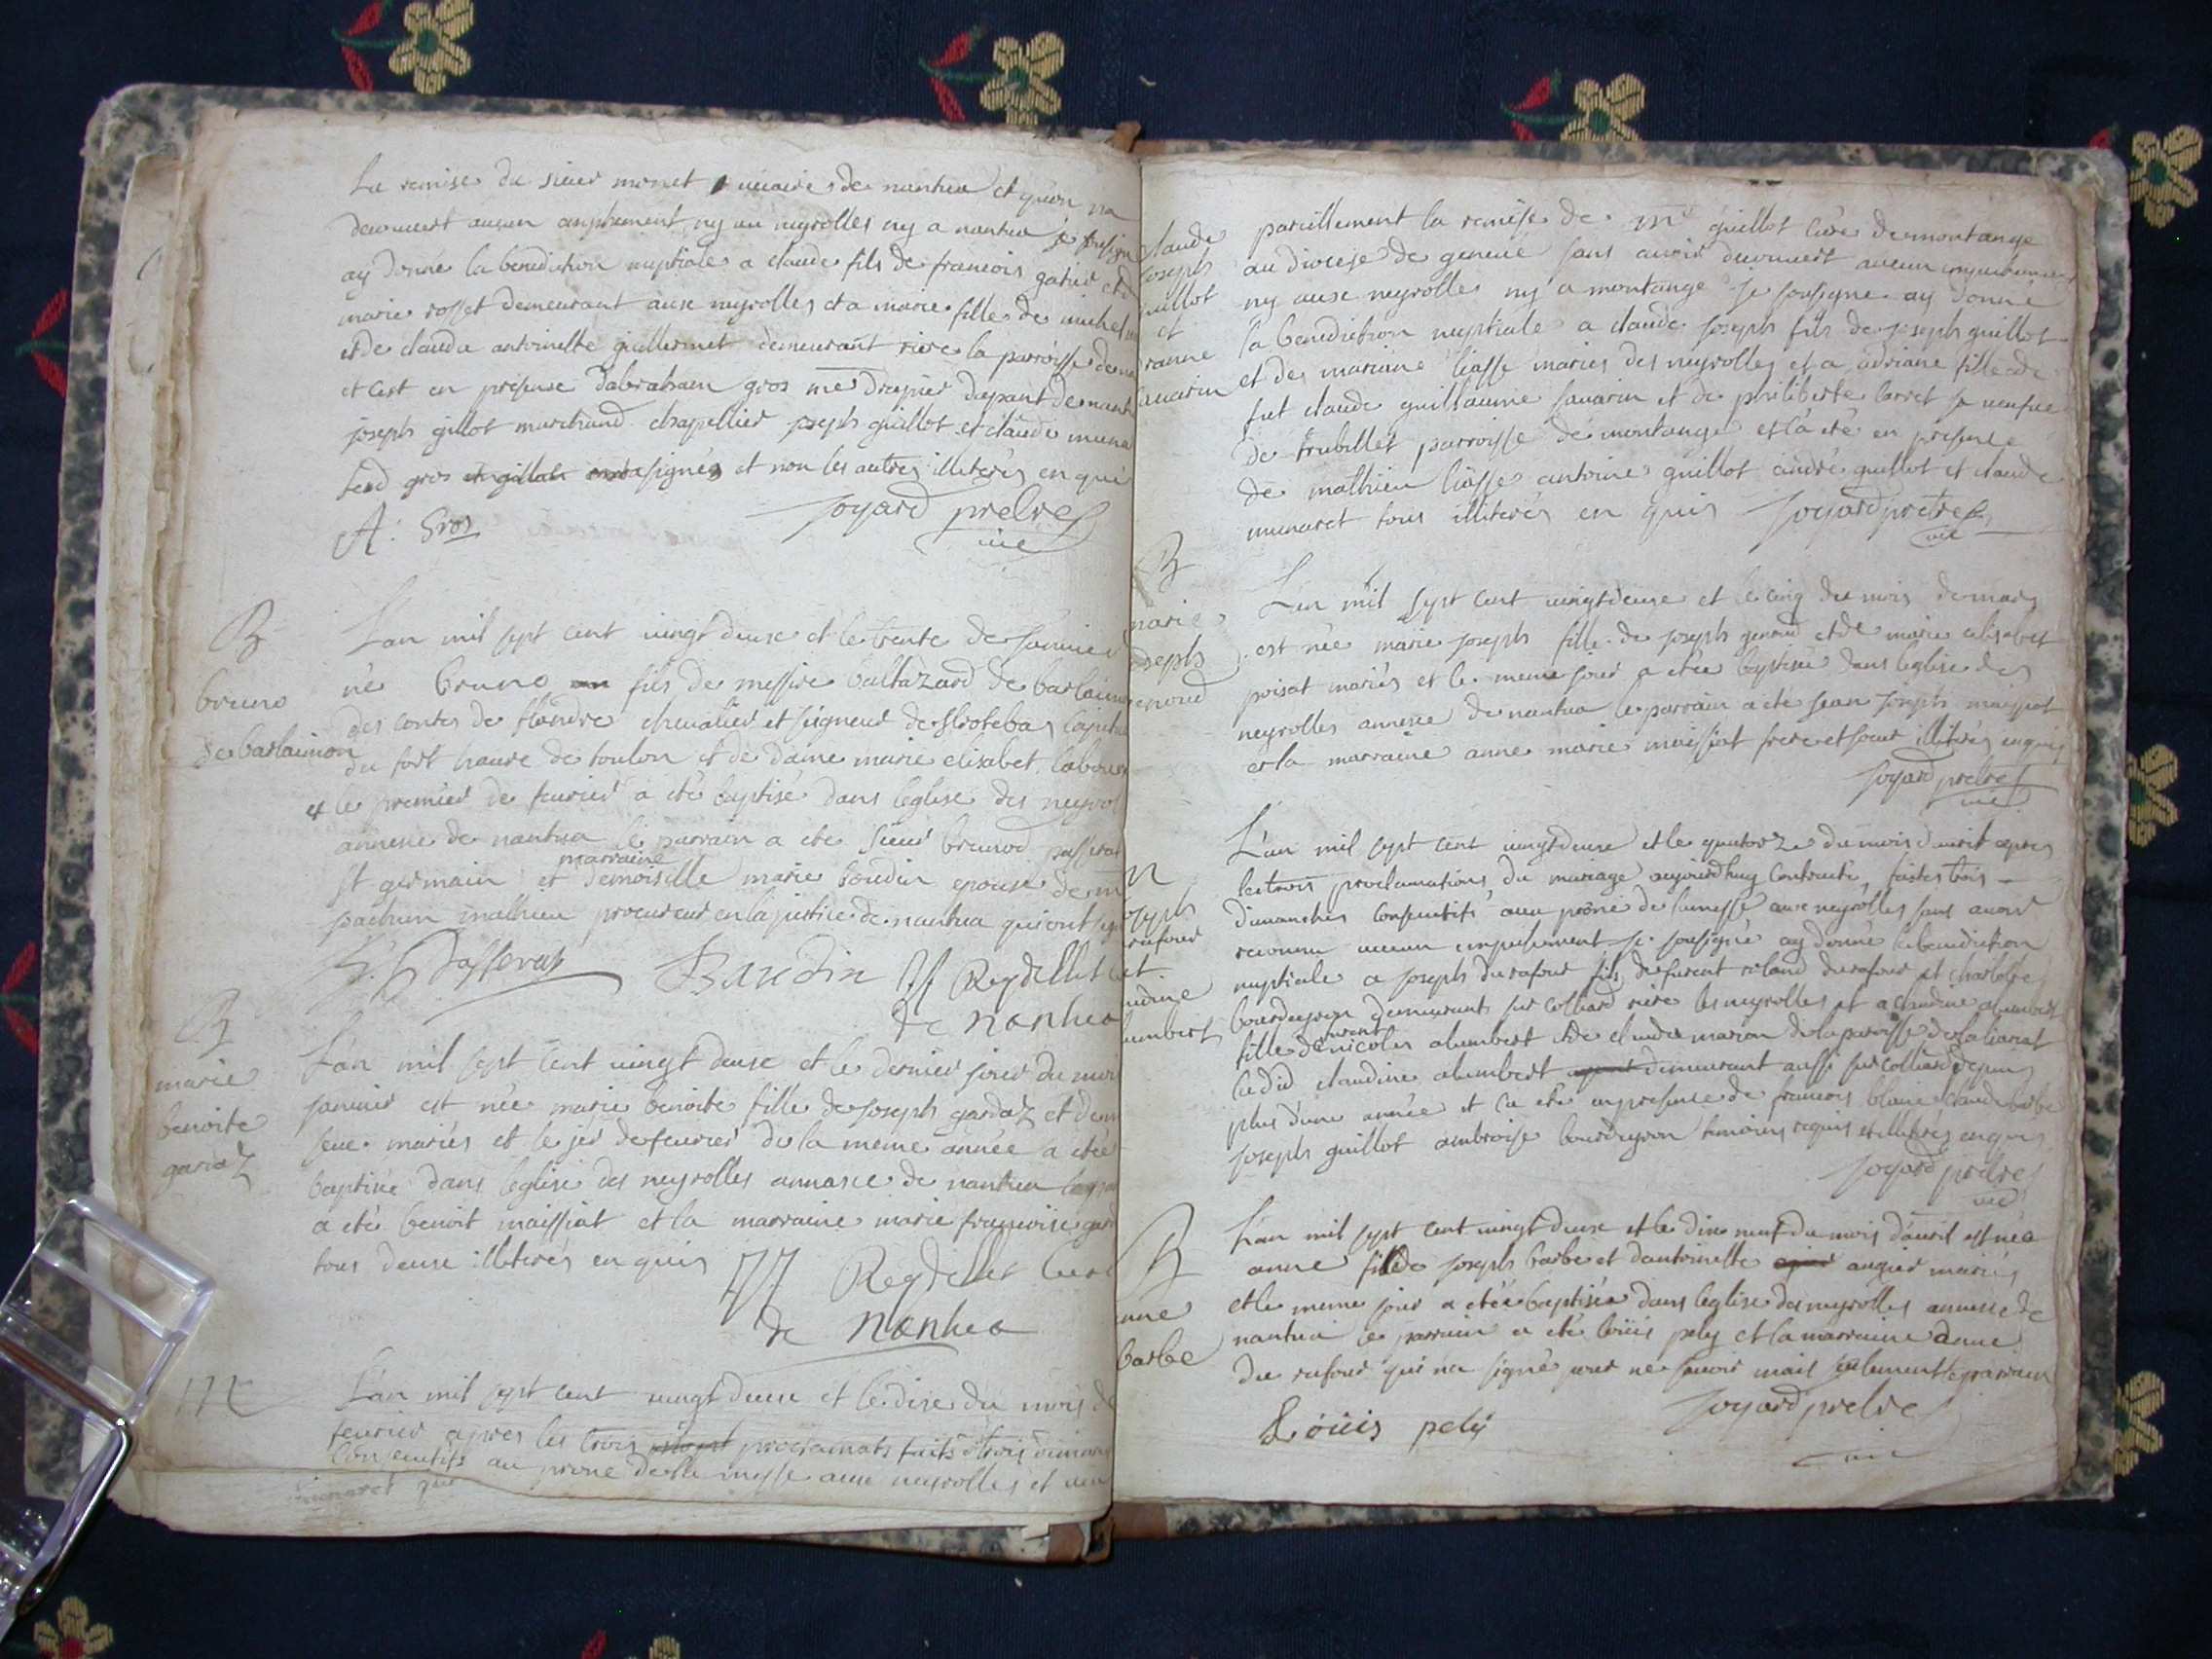 La remise du sieur monet vicaire de nantua et qu'on na
decouvert aucun empechement ny au neyrolles ny a nantua je soussign
ay donné la benediction nuptiale a claude fils de francois
marie rosset demeurant aux neyrolles et a marie fille de michel
et de clauda antoinette guillermet demeurant riere la parroisse de
et cest en presence dabraham gros me drapier de nant
joseph gillot marchand chapellier joseph guillot et claude muna
led gros et gillot signés et non les autres illiterés enquis
A: Gros
Joyard pretre
vic
B
bruno
de barlaimon
L'an mil sept cent vingt deuxe et le trente de janvier
né bruno fils de messire baltazard de barlaimon
des contes de flandre chevalier et seigneur de capita
du fort de toulon et de dame marie elisabet
et le premier de fevrier a eté baptisé dans leglise des neyrol
annexe de nantua le parrain a eté sieur brunod passerat
st germain et marraine demoiselle marie boudin epouse de
mathieu procureur en la justice de nantua qui ont sig
Passerat
Baudin
Reydellet
de nantua
B
marie
benoite
gardaz
L'an mil sept cent vingt deuxe et le dernier jour du moi
janvier est née marie benoite fille de joseph gardaz et de
mariés et le jer de fevrier de la meme année a eteé
baptisée dans leglise des neyrolles annaxe de nantua le
a eté benoit maissiat et la marraine marie francoise gard
tous deuxe illiterés enquis
Reydellet curé
de nantua
M
L'an mil sept cent vingt deuxe et le dixe du mois de
fevrier apres les trois proclamats faits trois dimanc
consecutifs au prone de la messe aux neyrolles et
claude
joseph
guillot
et
savarin
pareillement la remise de Mr guillot curé de montange
au diocese de geneve sans avoir decouvert aucun empechement
ny auxe neyrolles ny a montange je sousigne ay donné
la benediction nuptiale a claude joseph fils de joseph guillot
et de mariane liasse mariés des neyrolles et a adriane fille de
fut claude guillaume savarin et de philiberte sa veufve
de trebillet parroisse de montange et la eté en presence
de mathieu liasse antoine guillot andré guillot et claude
munaret tous illiterés enquis
Joyard pretre
vic
B
marie
joseph
L'an mil sept cent vingt deuxe et le cinq du mois de mars
est née marie joseph fille de joseph et de marie elisabet
poisat mariés et le meme jour a etée baptisée dans leglise des
neyrolles annexe de nantua le parrain a eté jean joseph maissiat
et la marraine anne marie maissiat frere et soeur illiterés enquis
Joyard pretre
vic
M
joseph
durafour
et
claudine
alumbert
L'an mil sept cent vingt deuxe et le quatorze du mois d'avril apres
les trois proclamations du mariage aujourdhuy contracté, faites trois
dimanches consecutifs au prone de la messe aux neyrolles sans avoir
reconnu aucun empechement je sousigné ay donné la benediction
nuptiale a joseph durafour fils de furent roland durafour et charlotte
bourdeyron demeurants sur colliard riere les neyrolles et a claudine alumbert
fille de nicolas alumbert et de clauda marion de la paroisse de
ladit claudine alumbert demeurant aussi sur colliard depuis
plus d'une année et la eté en presence de francois blanc claude barbe
joseph guillot ambroise bourdeyron temoins requis et illiterés enquis
Joyard pretre
vic
B
anne
barbe
L'an mil sept cent vingt deuxe et le dixe neuf du mois d'avril est née
anne fille de joseph barbe et dantoinette augier mariés
et le meme jour a etée baptisée dans leglise des neyrolles annexe de
nantua le parrain a eté loüis pely et la marraine anne
du rafour qui na signé pour ne savoir mais seulement le parrain
Loüis pely
Joyard pretre
vic